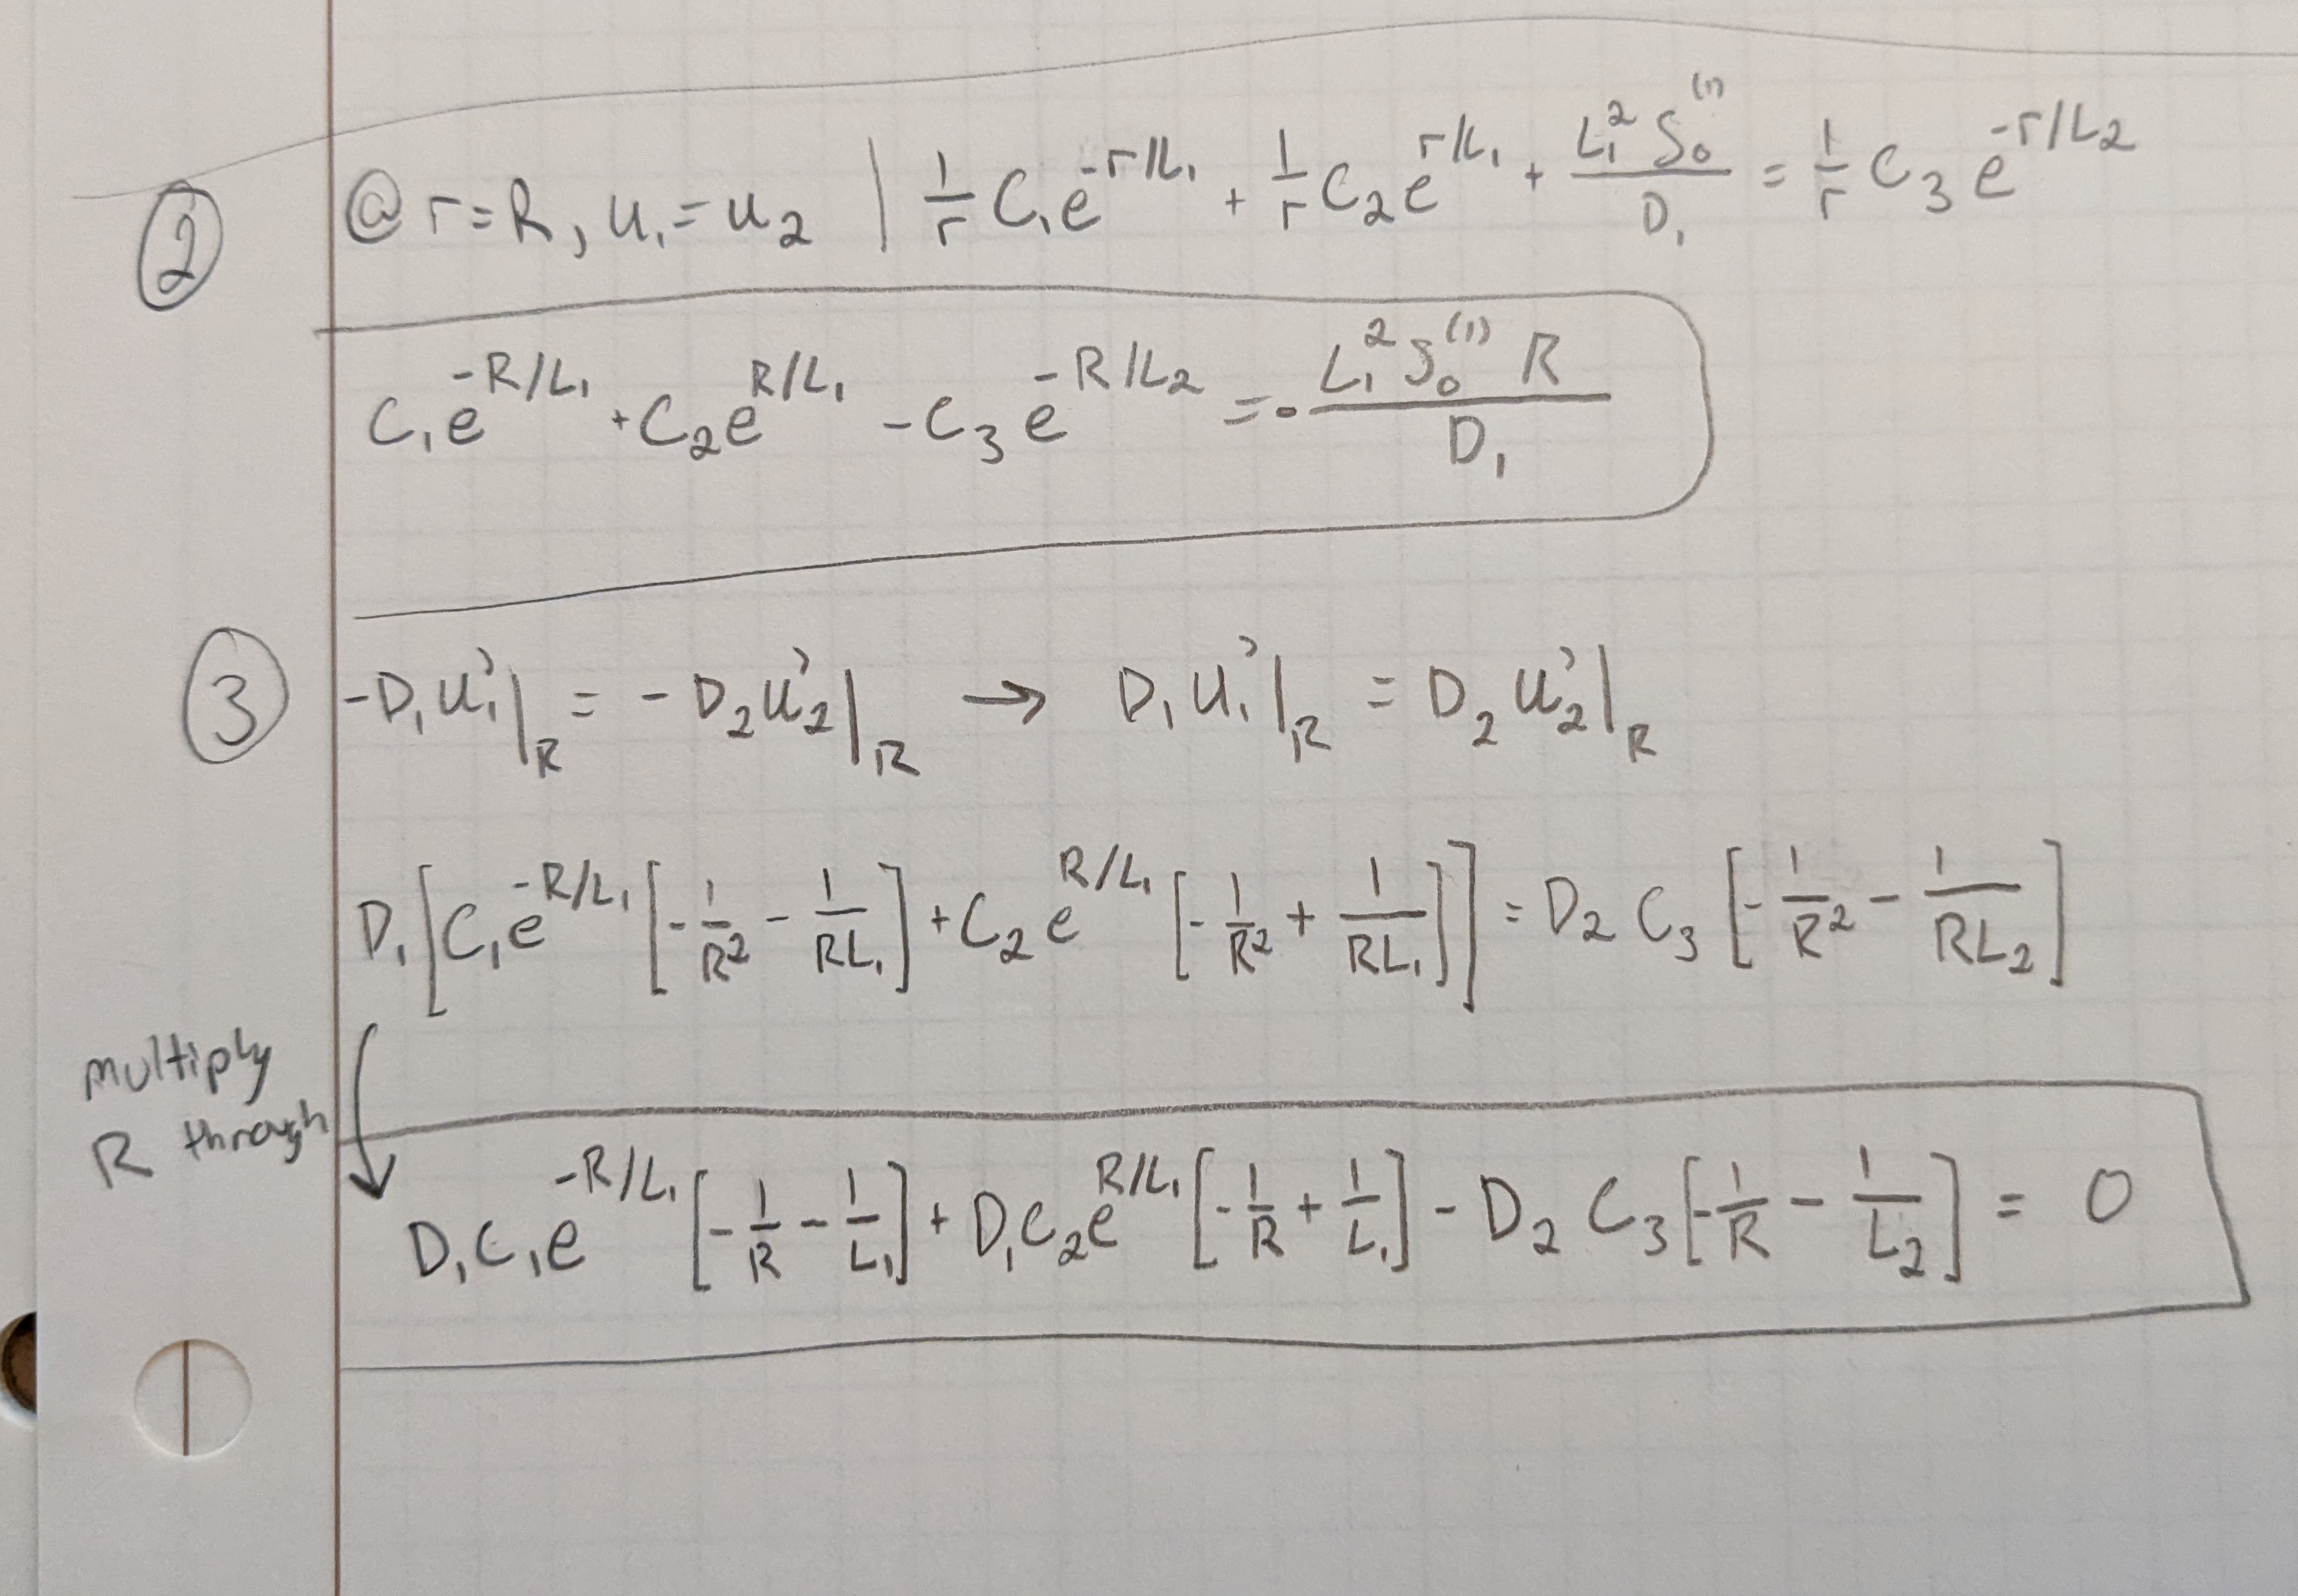 ② @ r=R, u₁=u₂ | \frac{1}{r} C₁e^{-r/L₁} + \frac{1}{r} C₂e^{r/L₁} + \frac{L₁² S₀^{(1)}}{D₁} = \frac{1}{r} C₃ e^{-r/L₂}
C₁e^{-R/L₁} + C₂e^{R/L₁} - C₃e^{-R/L₂} = -\frac{L₁² S₀^{(1)} R}{D₁}
③ -D₁u₁'|_R = -D₂u₂'|_R → D₁u₁'|_R = D₂u₂'|_R
D₁[C₁e^{-R/L₁}[-\frac{1}{R²} - \frac{1}{RL₁}] + C₂e^{R/L₁}[-\frac{1}{R²} + \frac{1}{RL₁}]] = D₂C₃[-\frac{1}{R²} - \frac{1}{RL₂}]
multiply
R through
D₁C₁e^{-R/L₁}[-\frac{1}{R} - \frac{1}{L₁}] + D₁C₂e^{R/L₁}[-\frac{1}{R} + \frac{1}{L₁}] - D₂C₃[-\frac{1}{R} - \frac{1}{L₂}] = 0